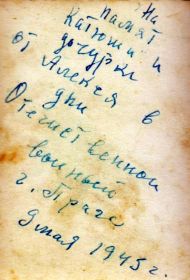 На
памят
Катюши и
дочурки
от Алексея в
дни
Отечественной
войный
г. Прага
9 мая 1945 г.